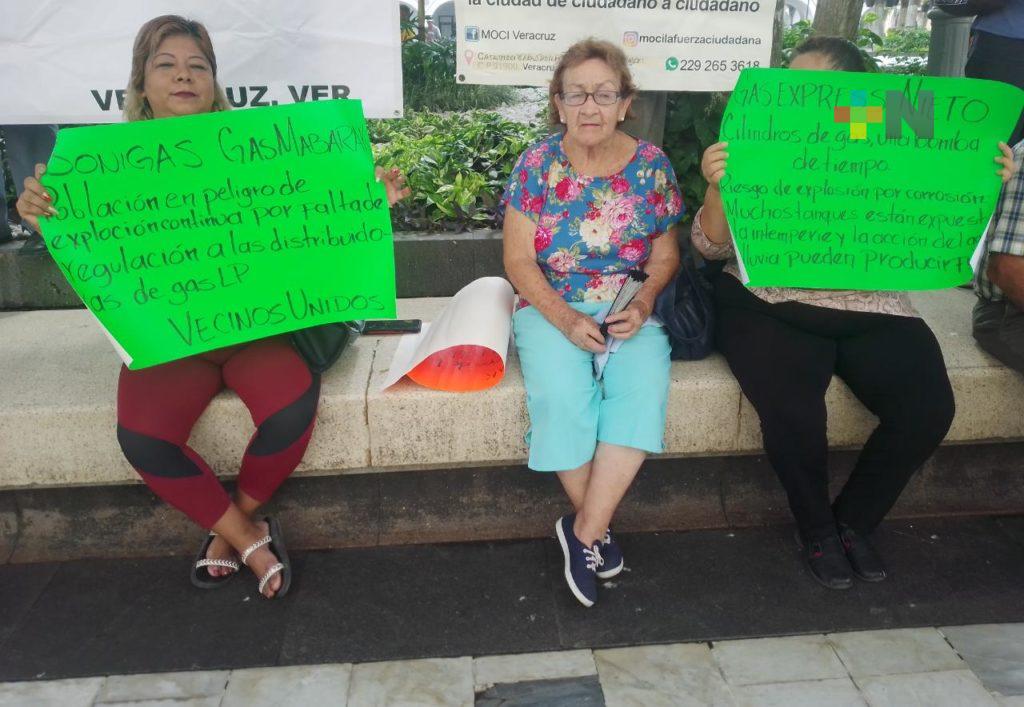 la ciudad de ciudadano a ciudadano
MOCI Veracruz
mocilafuerzaciudadana
Veracruz
229 265 3618
VE UZ, VER
SONIGAS GASMABARAK
Población en peligro de
explocion continua por falta de
regulación a las distribuido-
as de gas LP
VECINOS UNIDOS
GAS EXPRES NIETO
Cilindros de gas, una bomba
de tiempo.
Riesgo de explosión por corrosión
Muchos tanques están expuest
la intemperie y la acción del
lluvia pueden producir
N